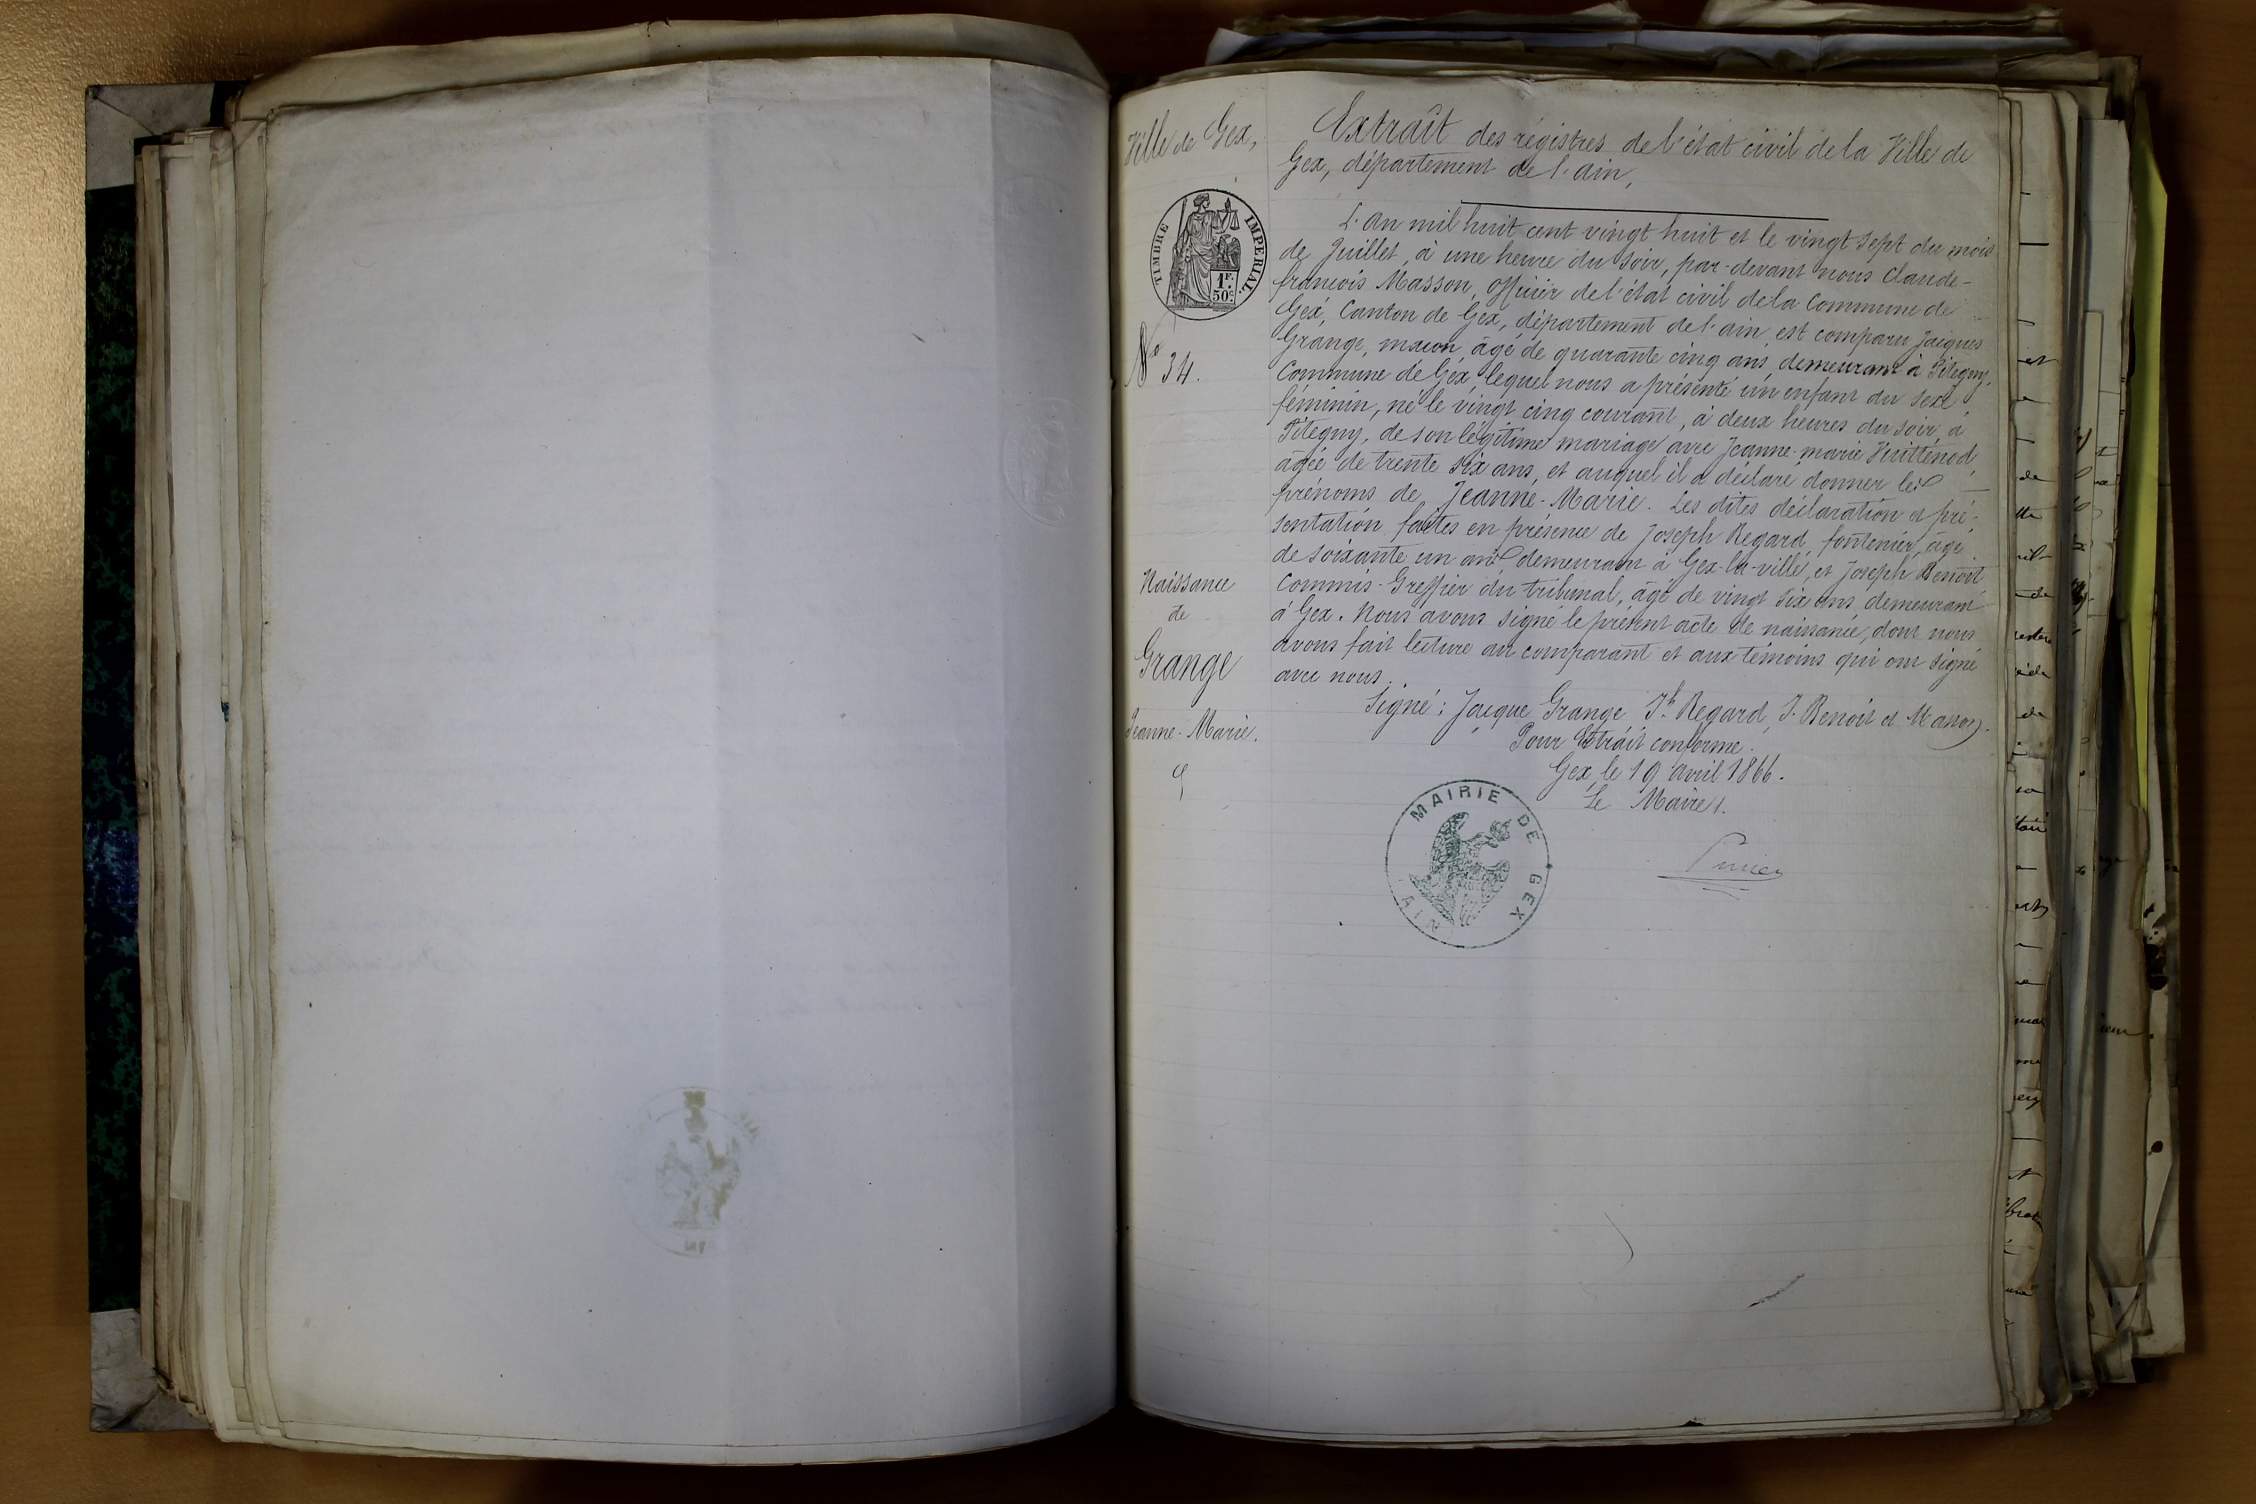 Ville de Gex,
TIMBRE IMPERIAL.
1F.
50c.
No 34.
Naissance
de
Grange
Jeanne-Marie.
Extrait des régistres de l'état civil de la Ville de
Gex, département de l'ain,
L'an mil huit cent vingt huit et le vingt sept du mois
de Juillet, à une heure du soir, par-devant nous Claude-
françois Masson, officier de l'état civil de la Commune de
Gex, Canton de Gex, département de l'ain, est comparu Jacques
Grange, macon, âgé de quarante cinq ans, demeurant à Pitegny,
Commune de Gex, lequel nous a présenté un enfant du sexe
féminin, né le vingt cinq courant, à deux heures du soir, à
Pitegny, de son légitime mariage avec Jeanne-marie Vuittenod,
âgée de trente six ans, et auquel il a déclaré donner les
prénoms de Jeanne-Marie. Les dites déclaration et pré-
sentation faites en présence de Joseph Regard, fontenier, âgé
de soixante un ans demeurant à Gex-la-ville, et Joseph Benoit
Commis-Greffier du tribunal, âgé de vingt six ans, demeurant
à Gex. Nous avons signé le présent acte de naissance, dont nous
avons fait lecture au comparant et aux témoins qui ont signé
avec nous.
Signé: Jacque Grange, Jh Regard, J. Benoit et Masson.
Pour Extrait conforme.
Gex, le 19 avril 1866.
Le Maire,
MAIRIE DE GEX
AIN